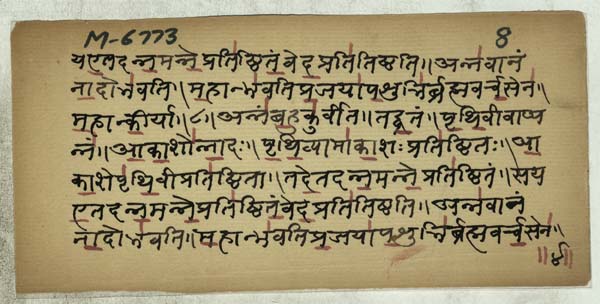 M-6773 8
यएतदन्नमन्नेप्रतिष्ठितंवेदप्रतितिष्ठति॥अन्नवानं
नादोभवति॥महान्भवतिप्रजयापशुभिर्ब्रह्मवर्चसेन॥
महान्कीर्त्या॥८॥अन्नंबहुकुर्वीत॥तद्व्रतं॥पृथिवीवाप्य
न्नं॥आकाशोन्नादः॥पृथिव्यामाकाशःप्रतिष्ठितः॥आ
काशेपृथिवीप्रतिष्ठिता॥तदेतदन्नमन्नेप्रतिष्ठितं॥सय
एतदन्नमन्नेप्रतिष्ठितंवेदप्रतितिष्ठति॥अन्नवानं
नादोभवति॥महान्भवतिप्रजयापशुभिर्ब्रह्मवर्चसेन॥